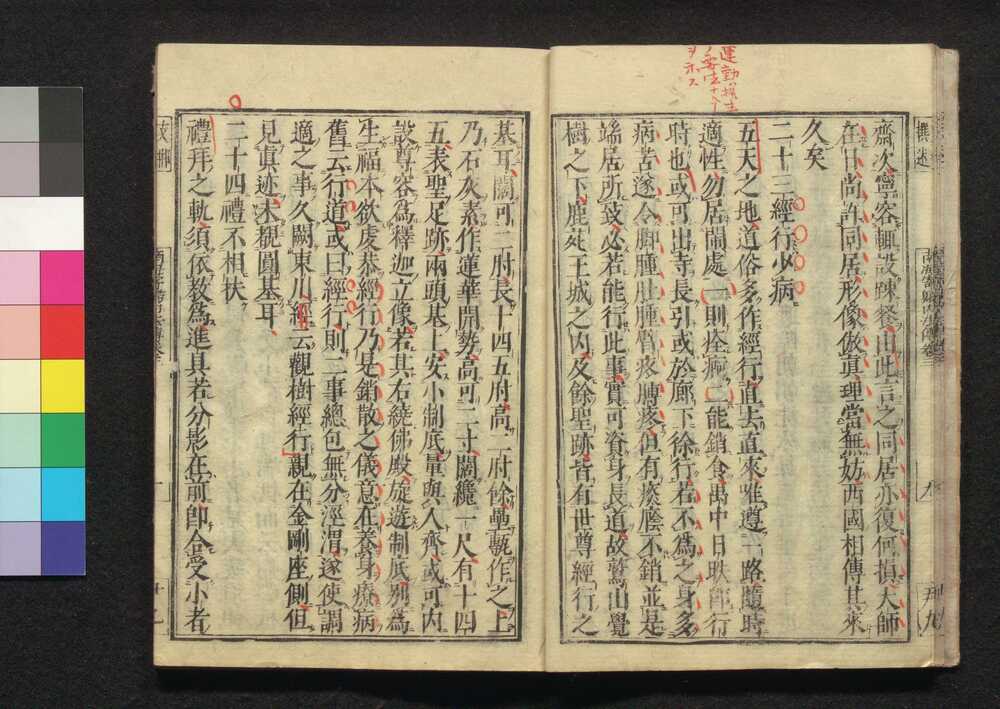 運動ハ
齋次寧容輙設踈餐由此言之同居亦復何損大師
在日尚許同居形像倣眞理當無妨西國相傳其來
久矣
二十三經行少病
五天之地道俗多作經行直去直來唯遵一路隨時
適性勿居閙處一則痊痾二能銷食禺中日昳卽行
時也或可出寺長引或於廊下徐行若不為之身多
病苦遂令脚腫肚腫臂疼膊疼但有痰癊不銷並是
端居所致必若能行此事實可資身長道故鷲山覺
樹之下鹿苑王城之內及餘聖跡皆有世尊經行之
基耳闊可二肘長十四五肘高二肘餘壘甎作之上
乃石灰素作蓮華開勢高可二寸闊纔一尺有十四
五表聖足跡兩頭基上安小制底量與人齊或可內
設尊容為釋迦立像若其右繞佛殿旋遊制底別為
生福本欲虔恭經行乃是銷散之儀意在養身療病
舊云行道或曰經行則二事總包無分涇渭遂使調
適之事久闕東川經云觀樹經行親在金剛座側但
見眞迹未覩圓基耳
二十四禮不相扶
禮拜之軌須依教為進具若分影在前卽合受小者